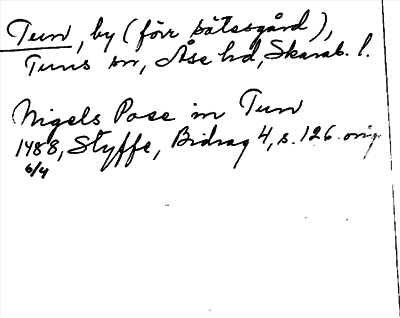 Tun, by (förr sätesgård),
Tuns sn, Åse hd, Skarab. l.
Nigels Posse in Tun
1488, Styffe, Bidrag 4, s. 126. orig.
6/4